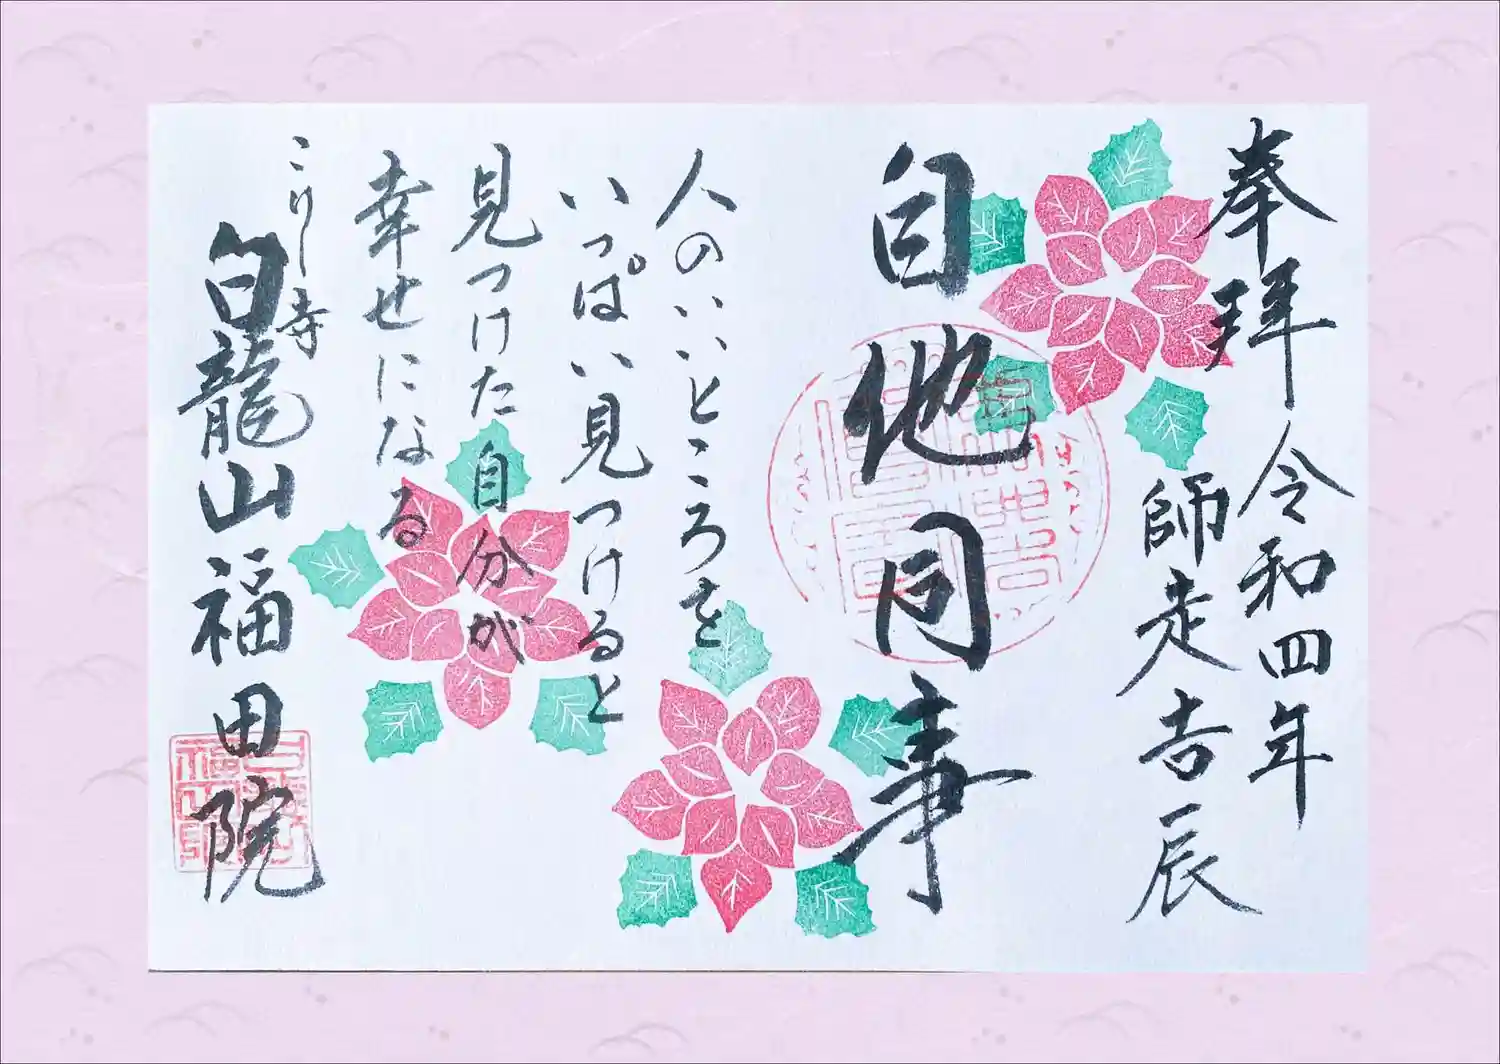 奉拝 令和四年
師走吉辰
自他同事
人のいいところを
いっぱい見つけると
見つけた自分が
幸せになる
こけし寺
白龍山福田院